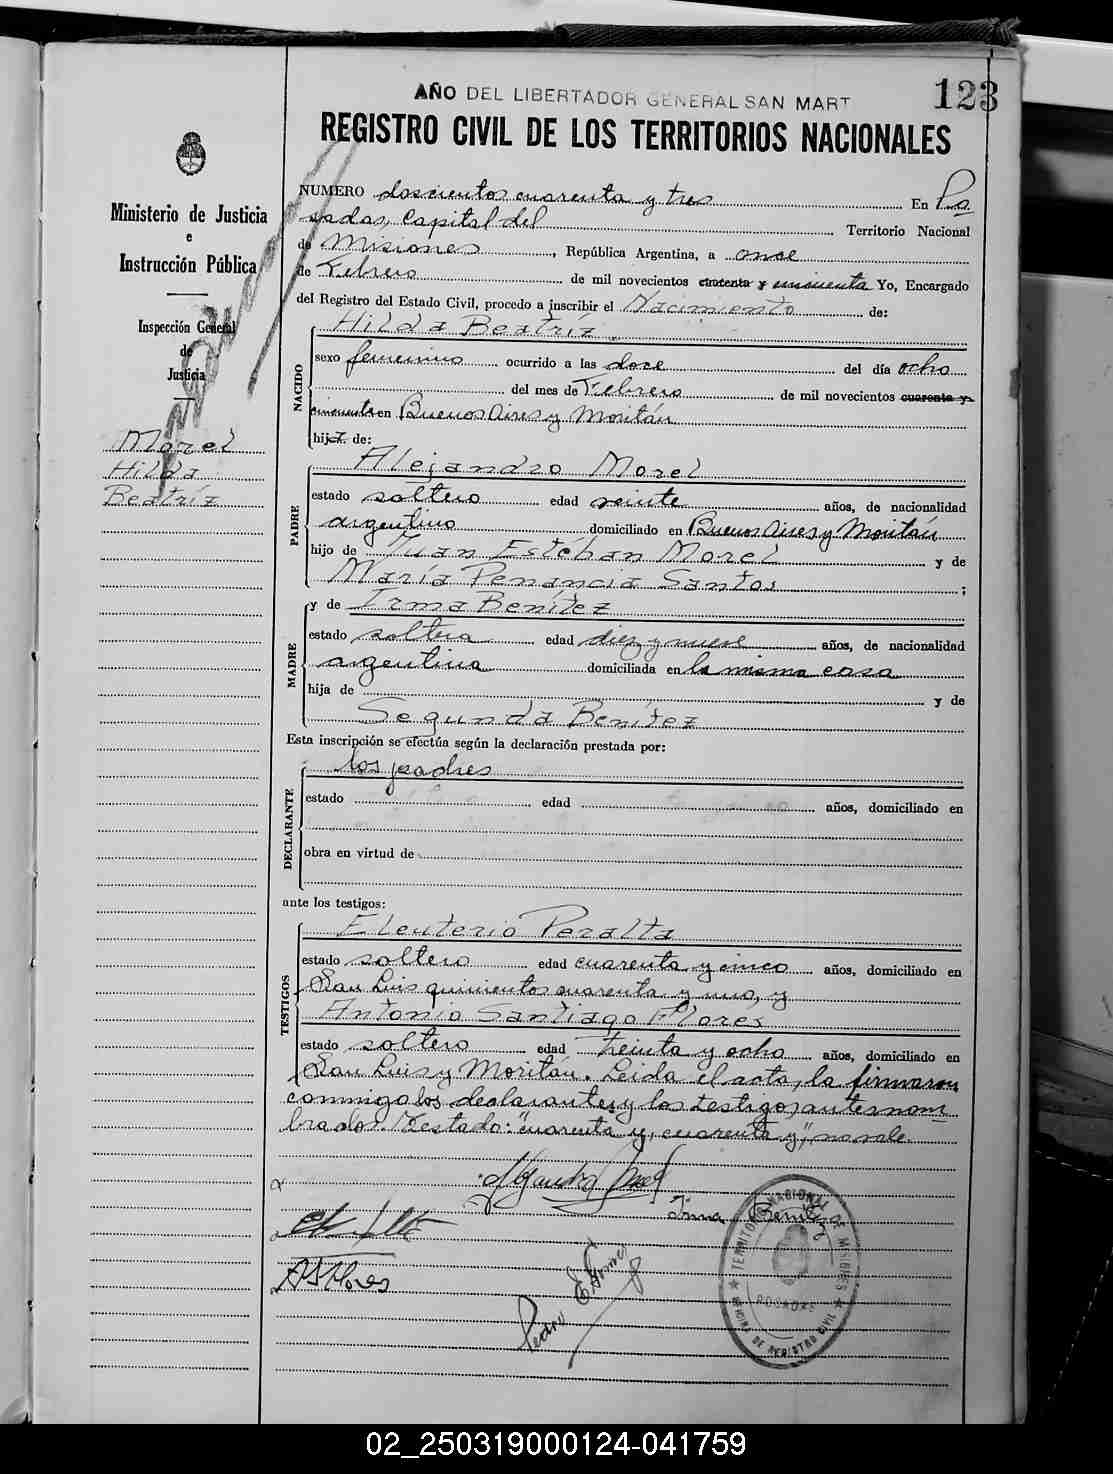 AÑO DEL LIBERTADOR GENERAL SAN MART
123
REGISTRO CIVIL DE LOS TERRITORIOS NACIONALES
Ministerio de Justicia
e
Instrucción Pública
Inspección General
de
Justicia
Morel
Hilda
Beatríz
NUMERO doscientos cuarenta y tres En Po
sadas, Capital del Territorio Nacional
de Misiones, República Argentina, a once
de Febrero de mil novecientos cuarenta y cincuenta Yo, Encargado
del Registro del Estado Civil, procedo a inscribir el Nacimiento de:
NACIDO
Hilda Beatriz
sexo femenino ocurrido a las doce del día ocho
del mes de Febrero de mil novecientos cuarenta y
cincuenta en Buenos Aires y Moritán
hija de:
PADRE
Alejandro Morel
estado soltero edad veinte años, de nacionalidad
argentino domiciliado en Buenos Aires y Moritán
hijo de Juan Estéban Morel y de
María Penancia Santos;
MADRE
y de Irma Benítez
estado soltera edad diez y nueve años, de nacionalidad
argentina domiciliada en la misma casa
hija de y de
Segunda Benítez
Esta inscripción se efectúa según la declaración prestada por:
DECLARANTE
los padres
estado edad años, domiciliado en
obra en virtud de
ante los testigos:
TESTIGOS
Eleuterio Peralta
estado soltero edad cuarenta y cinco años, domiciliado en
San Luis quinientos cuarenta y uno, y
Antonio Santiago Flores
estado soltero edad treinta y ocho años, domiciliado en
San Luis y Moritán. Leida el acta, la firmaron
conmigo los declarantes y los testigos antes nom
brados. Testado: "cuarenta y, cuarenta y", no vale
Alejandro Morel
Irma Benitez
A S Flores
Pedro E
TERRITORIO NACIONAL DE MISIONES
POSADAS
OFICINA DE REGISTRO CIVIL
02_250319000124-041759